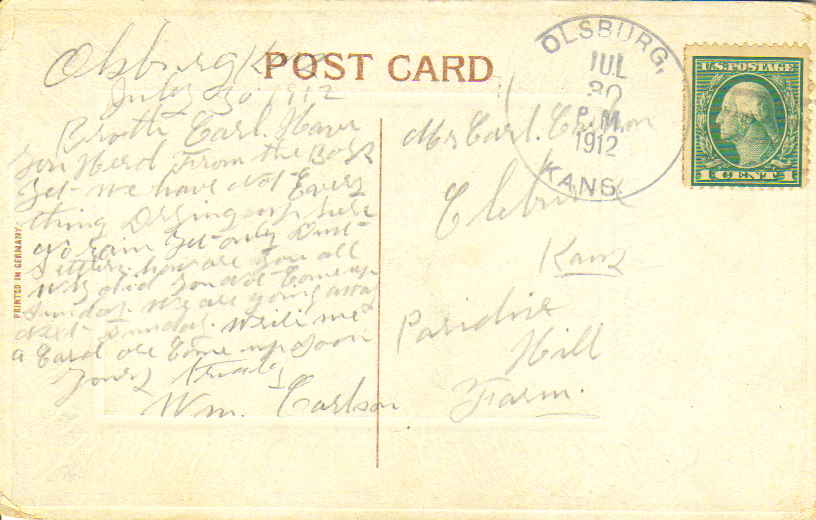 Olsburg Kans
POST CARD
July 30 1912
Broth Earl. Have
you Herd From the Boys
yet - we have Not Every
thing Drying up here
No rain yet - only Dust -
Settlers how are you all
Why did you Not Come up
Sunday. We are going away
Next - Sunday. Write me
a Card or Come up Soon
yours truly
Wm. Carlson
PRINTED IN GERMANY
OLSBURG,
JUL
30
P.M.
1912
KANS.
U.S. POSTAGE
1 CENT 1
Mr Earl. Carlson
Cleburne
Kans
Paridise
Hill
Farm.